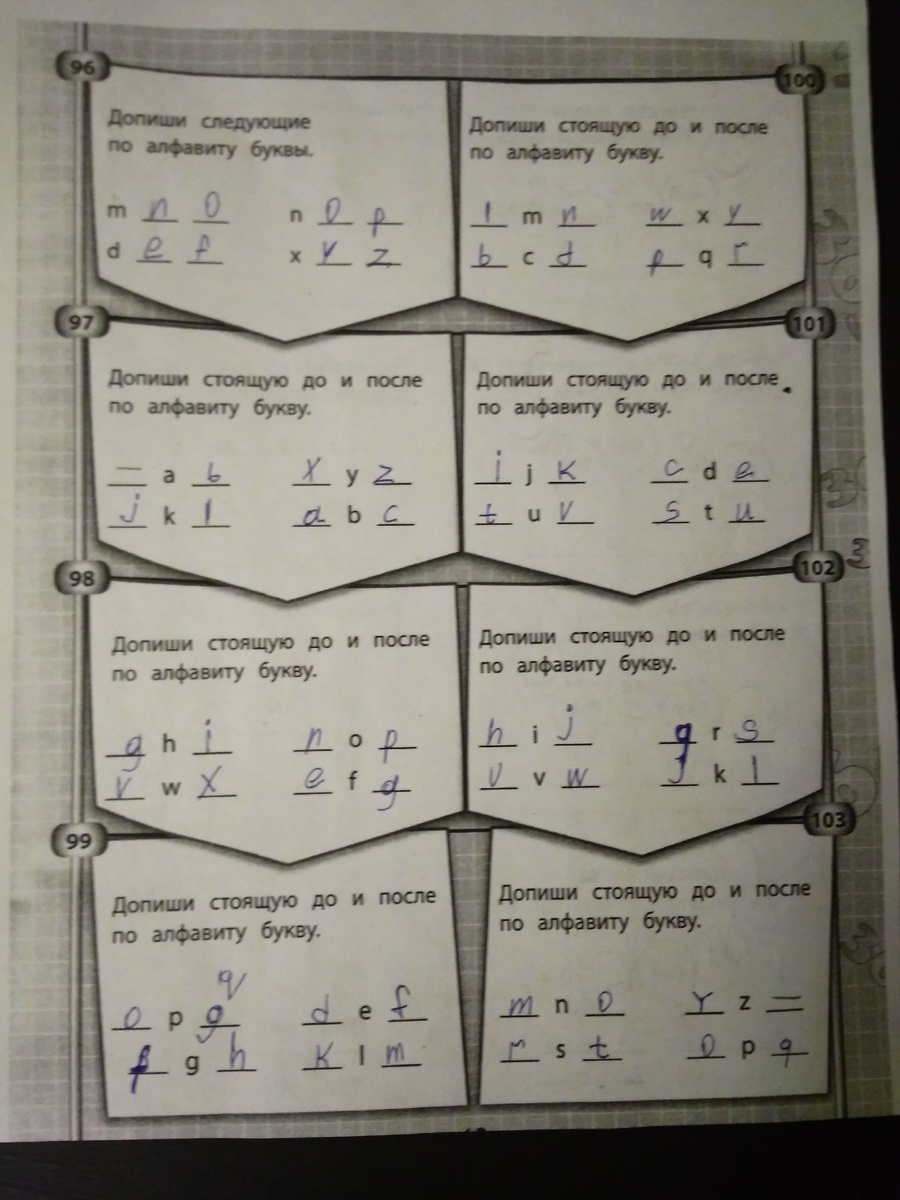 96
Допиши следующие
по алфавиту буквы.
m n o n o p
d e f x y z
100
Допиши стоящую до и после
по алфавиту букву.
l m n w x y
b c d p q r
97
Допиши стоящую до и после
по алфавиту букву.
— a b x y z
j k l a b c
101
Допиши стоящую до и после
по алфавиту букву.
i j k c d e
t u v s t u
98
Допиши стоящую до и после
по алфавиту букву.
g h i n o p
v w x e f g
102
Допиши стоящую до и после
по алфавиту букву.
h i j q r s
u v w j k l
99
Допиши стоящую до и после
по алфавиту букву.
q
o p g d e f
f g h k l m
103
Допиши стоящую до и после
по алфавиту букву.
m n o y z —
r s t o p q